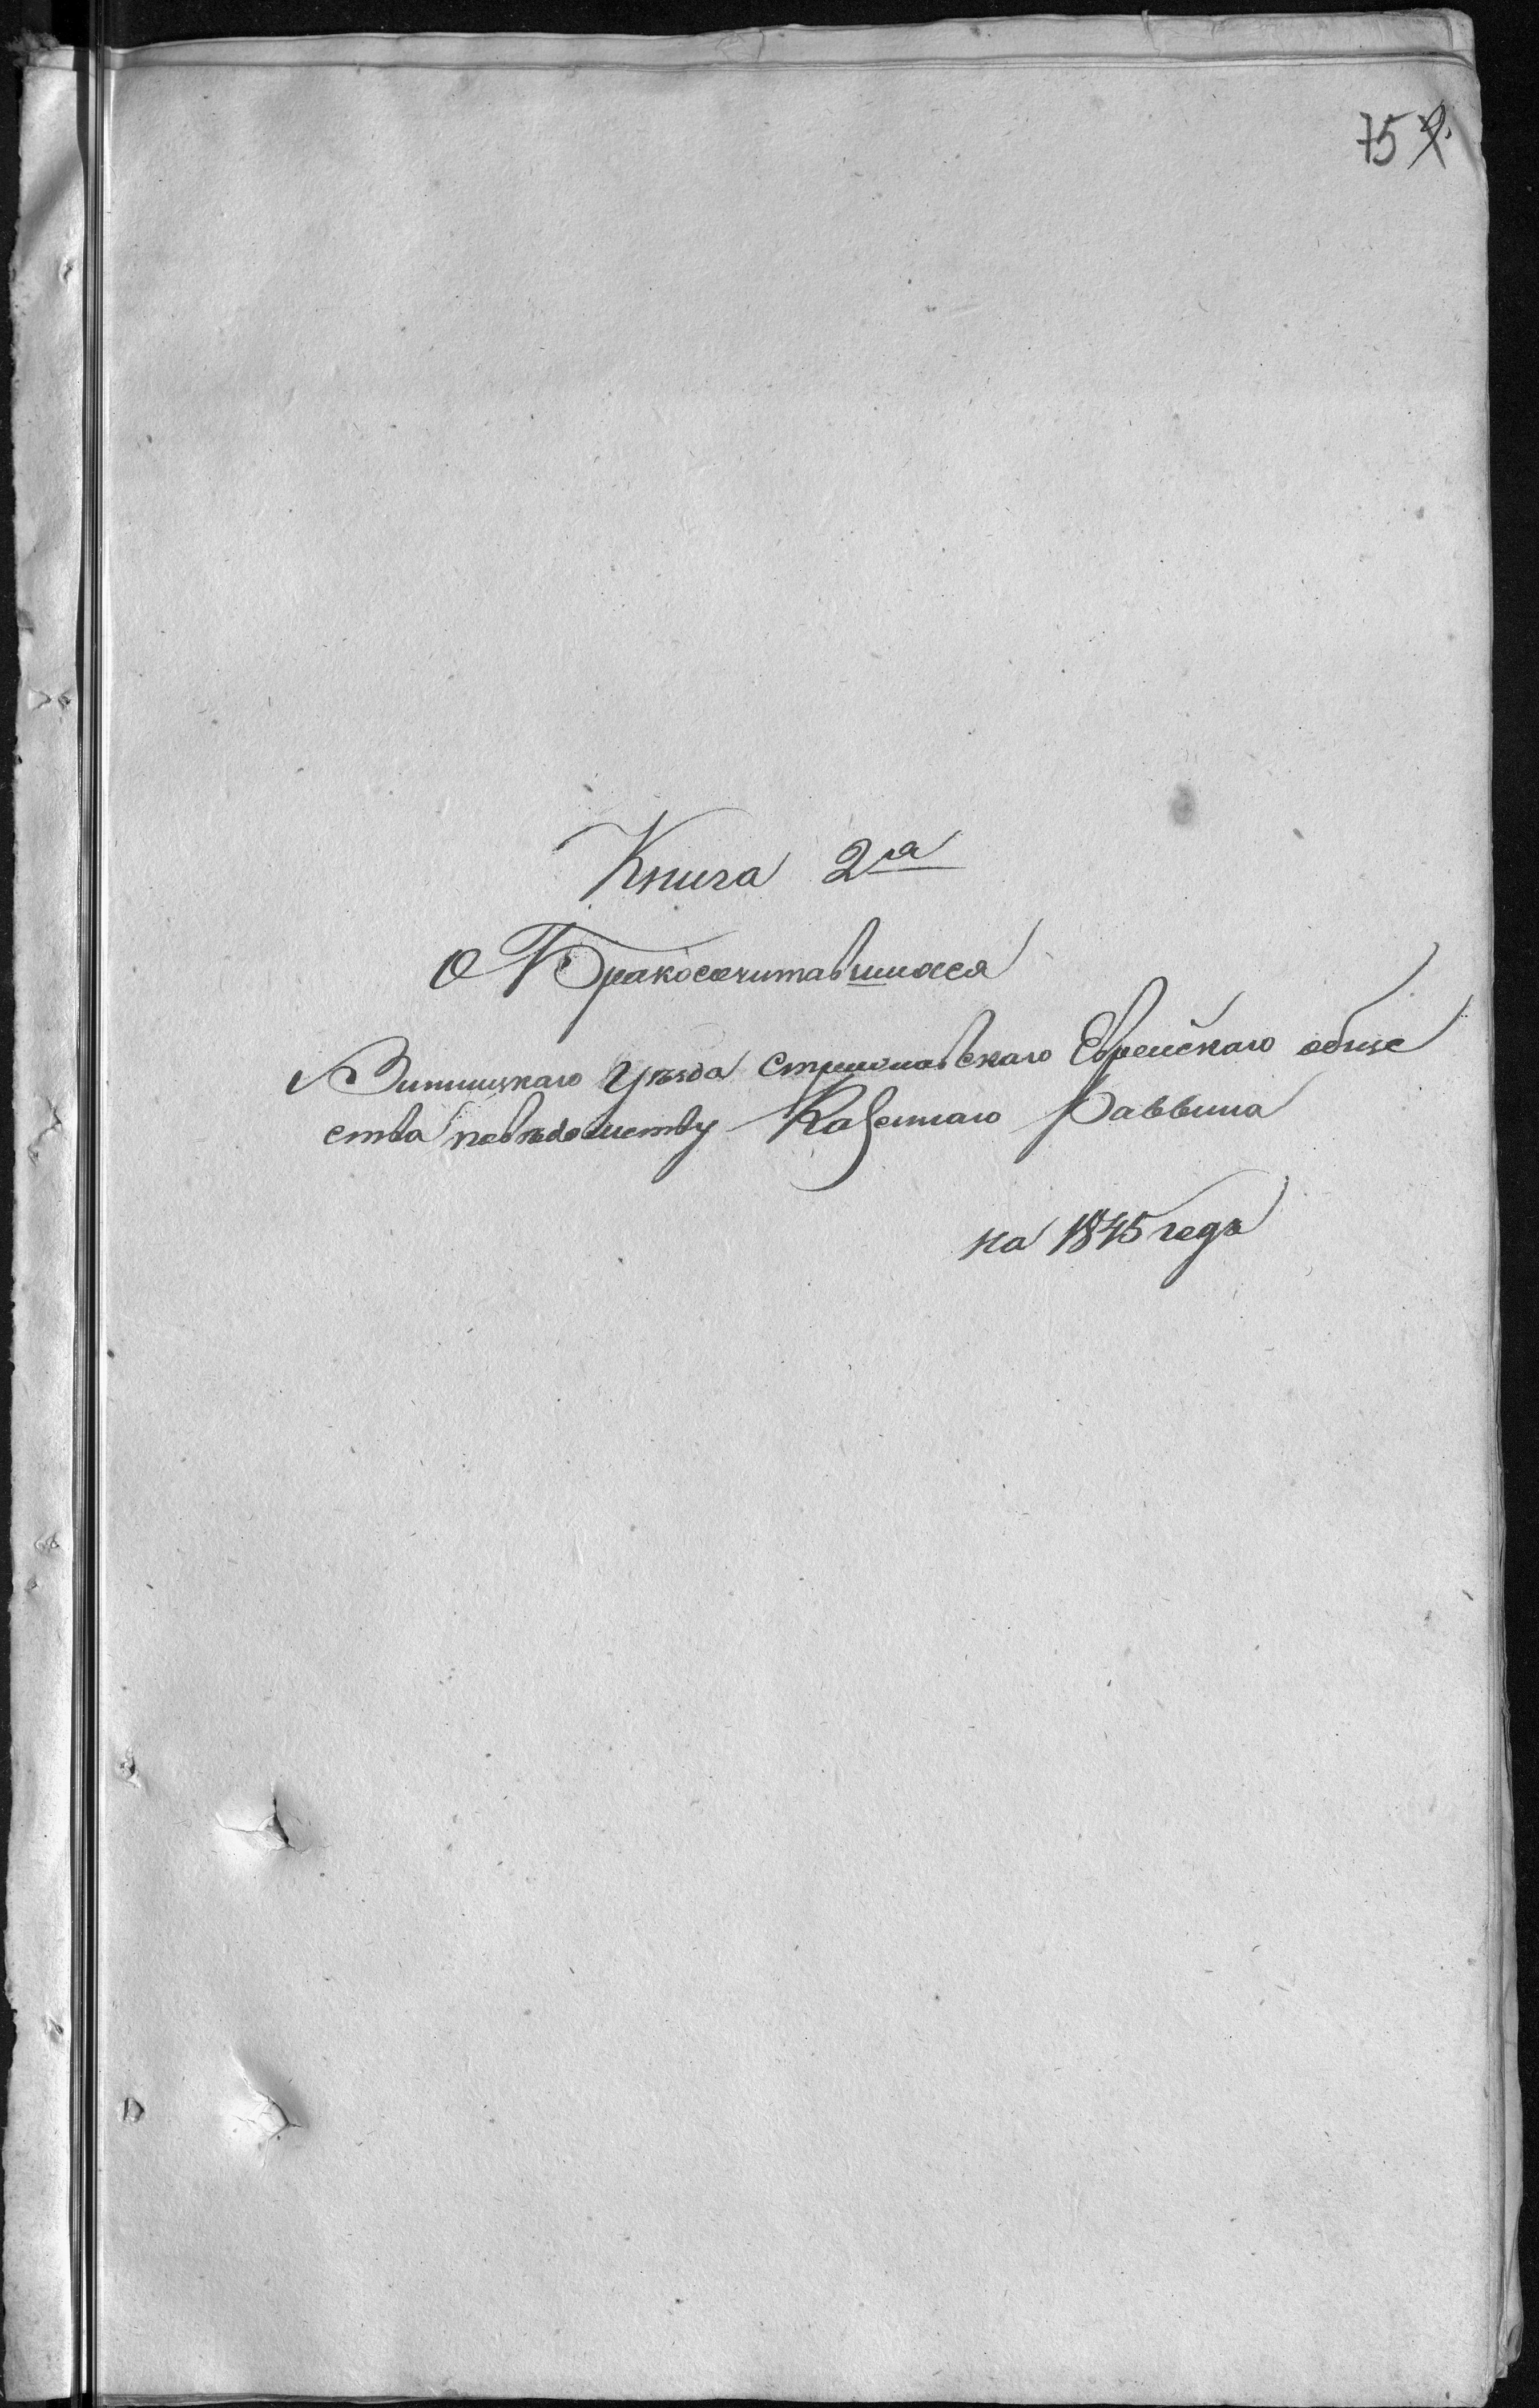 75
Книга 2ая
О Бракосочитавшихся
Винницкаго Уѣзда Стрижавскаго Еврейскаго обще
ства повѣдомству Казеннаго Раввина
на 1845 годъ